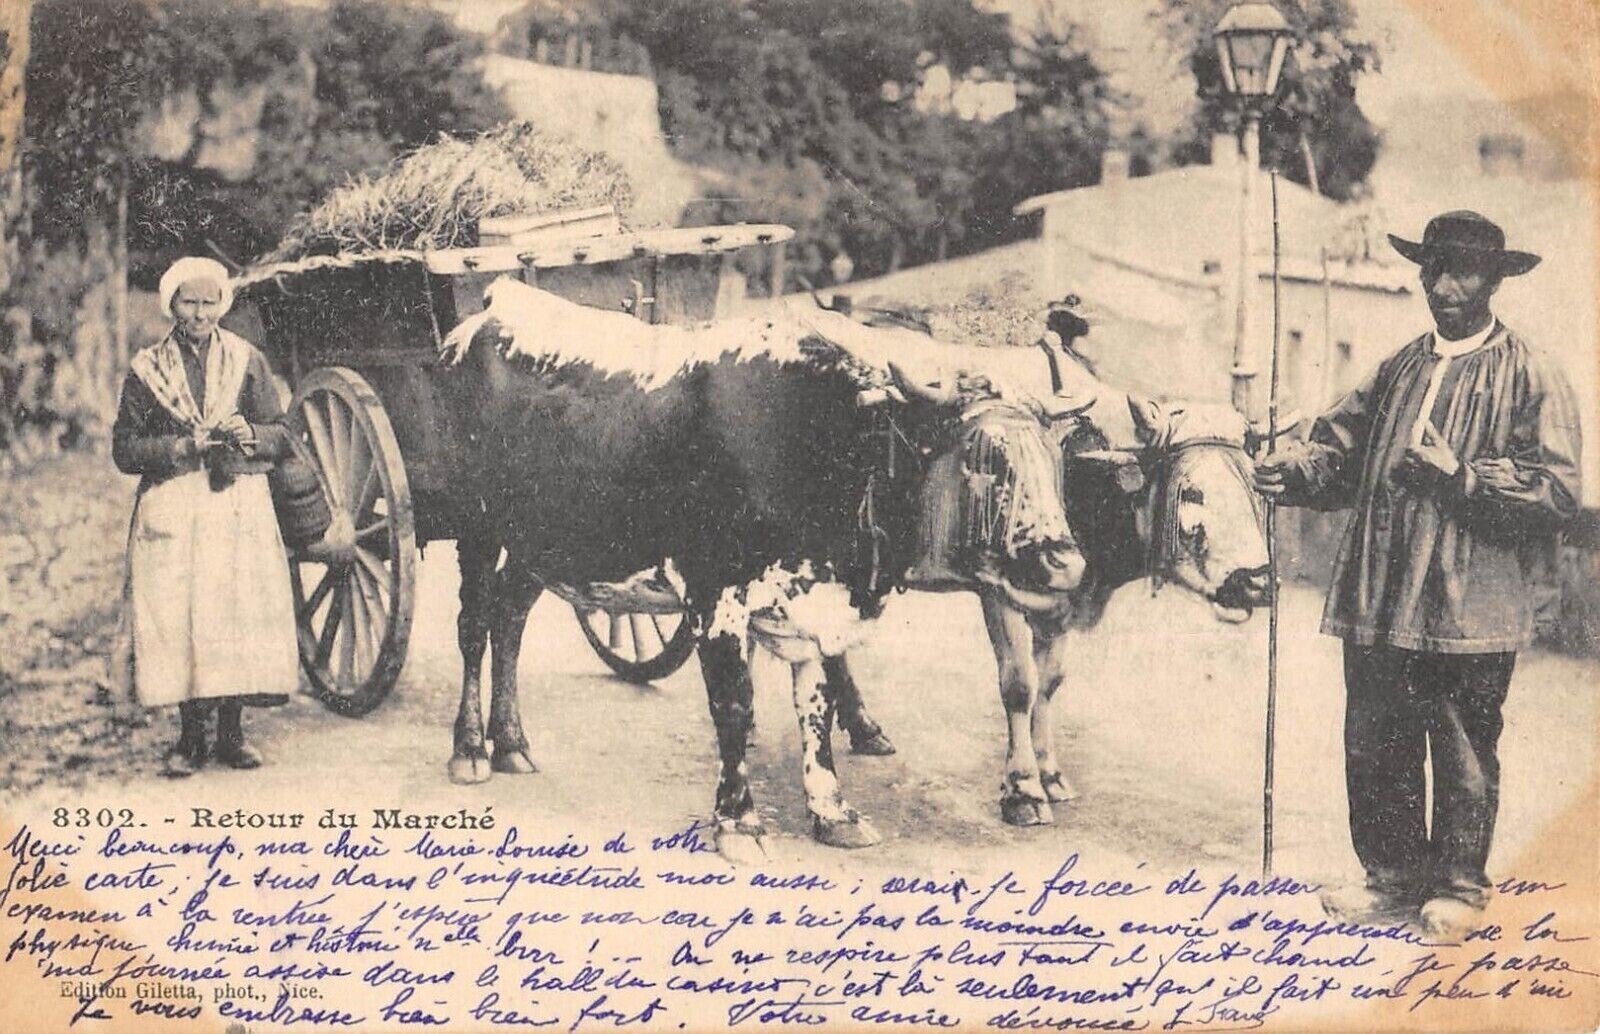 8302. - Retour du Marché
Merci beaucoup, ma chère Marie-Louise de votre
jolie carte; je suis dans l'inquiétude moi aussi; serai-je forcée de passer un
examen à la rentrée, j'espère que non car je n'ai pas la moindre envie d'apprendre de la
physique chimie et histoire nelle brrr!... On ne respire plus tant il fait chaud, je passe
ma journée assise dans le hall du casino, c'est là seulement qu'il fait un peu d'air
Edition Giletta, phot., Nice.
Je vous embrasse bien bien fort. Votre amie dévouée